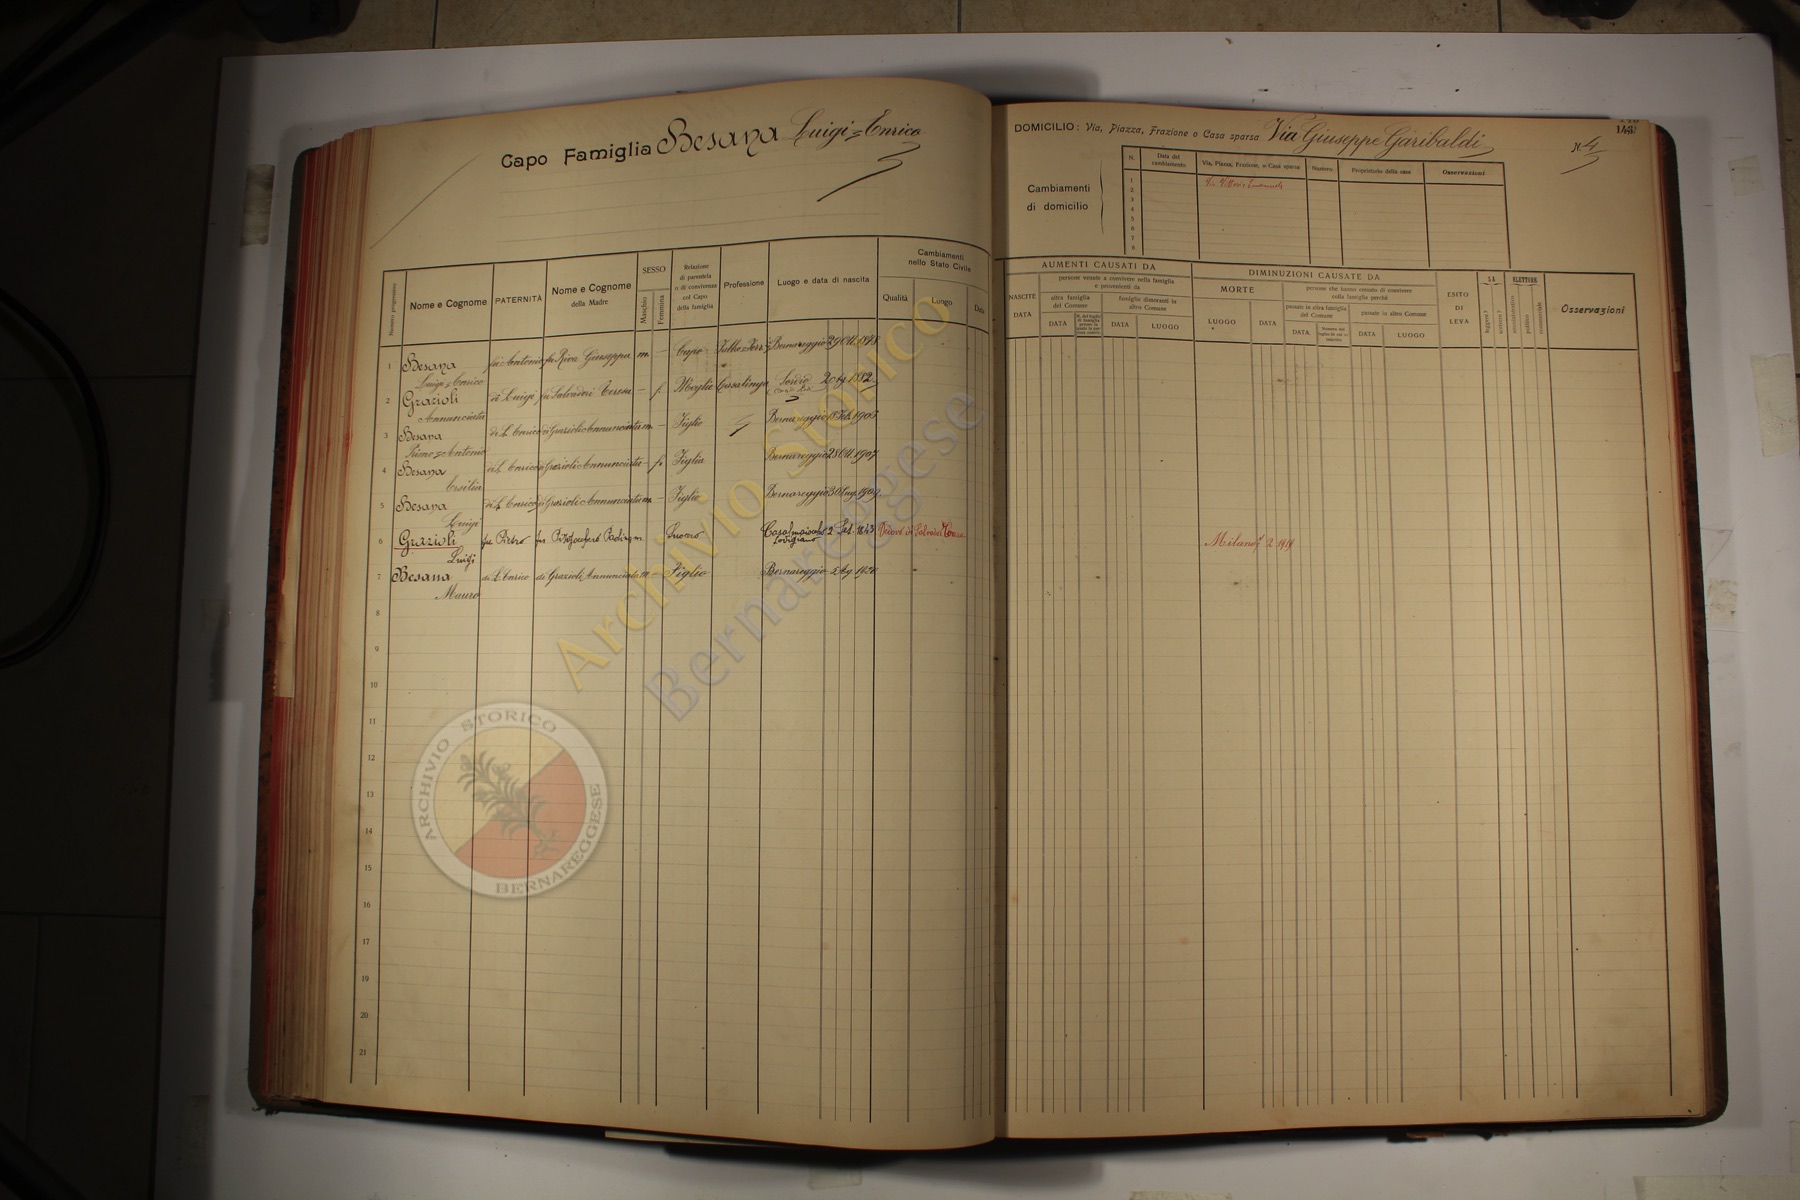 Capo Famiglia Besana Luigi=Enrico
DOMICILIO: Via, Piazza, Frazione o Casa sparsa Via Giuseppe Garibaldi N. 4
143
Cambiamenti
di domicilio
N. Data del cambiamento Via, Piazza, Frazione, o Casa sparsa Numero Proprietario della casa Osservazioni
1
2
3
4
5
6
7
8
Numero progressivo Nome e Cognome PATERNITÀ Nome e Cognome della Madre SESSO Maschio Femmina Relazione di parentela o di convivenza col Capo della famiglia Professione Luogo e data di nascita Cambiamenti nello Stato Civile Qualità Luogo Data
AUMENTI CAUSATI DA
NASCITE DATA
persone venute a convivere nella famiglia e provenienti da
altra famiglia del Comune
famiglie dimoranti in altro Comune
DATA DATA LUOGO
DIMINUZIONI CAUSATE DA
MORTE
LUOGO DATA
persone che hanno cessato di convivere colla famiglia perchè
passate in altra famiglia del Comune
passate in altro Comune
DATA DATA LUOGO
ESITO DI LEVA
SA leggere? scrivere?
ELETTORE amministrativo politico commerciale
Osservazioni
1 Besana fu Antonio fu Riva Giuseppa m. – Capo Bernareggio 29 Ott.
Luigi=Enrico
2 Grazioli di Luigi fu Salvadori Teresa – f. Moglie Casalinga 1882
Annunciata
3 Besana di L. Enrico di Grazioli Annunciata m. – Figlio Bernareggio 18 Feb. 1905
Primo=Antonio
4 Besana di L. Enrico di Grazioli Annunciata – f. Figlia Bernareggio 28 Ott. 1907
Ersilia
5 Besana di L. Enrico di Grazioli Annunciata m. – Figlio Bernareggio 30 Lug. 1909
Luigi
6 Grazioli fu Pietro fu m. Suocero 2 Set. 1843 Vedovo di Milano 2 1919
Luigi
7 Besana di L. Enrico di Grazioli Annunciata m – Figlio Bernareggio 5 Ag. 1920
Mauro
8
9
10
11
12
13
14
15
16
17
18
19
20
21
Archivio Storico
Bernareggese
ARCHIVIO STORICO
BERNAREGGESE